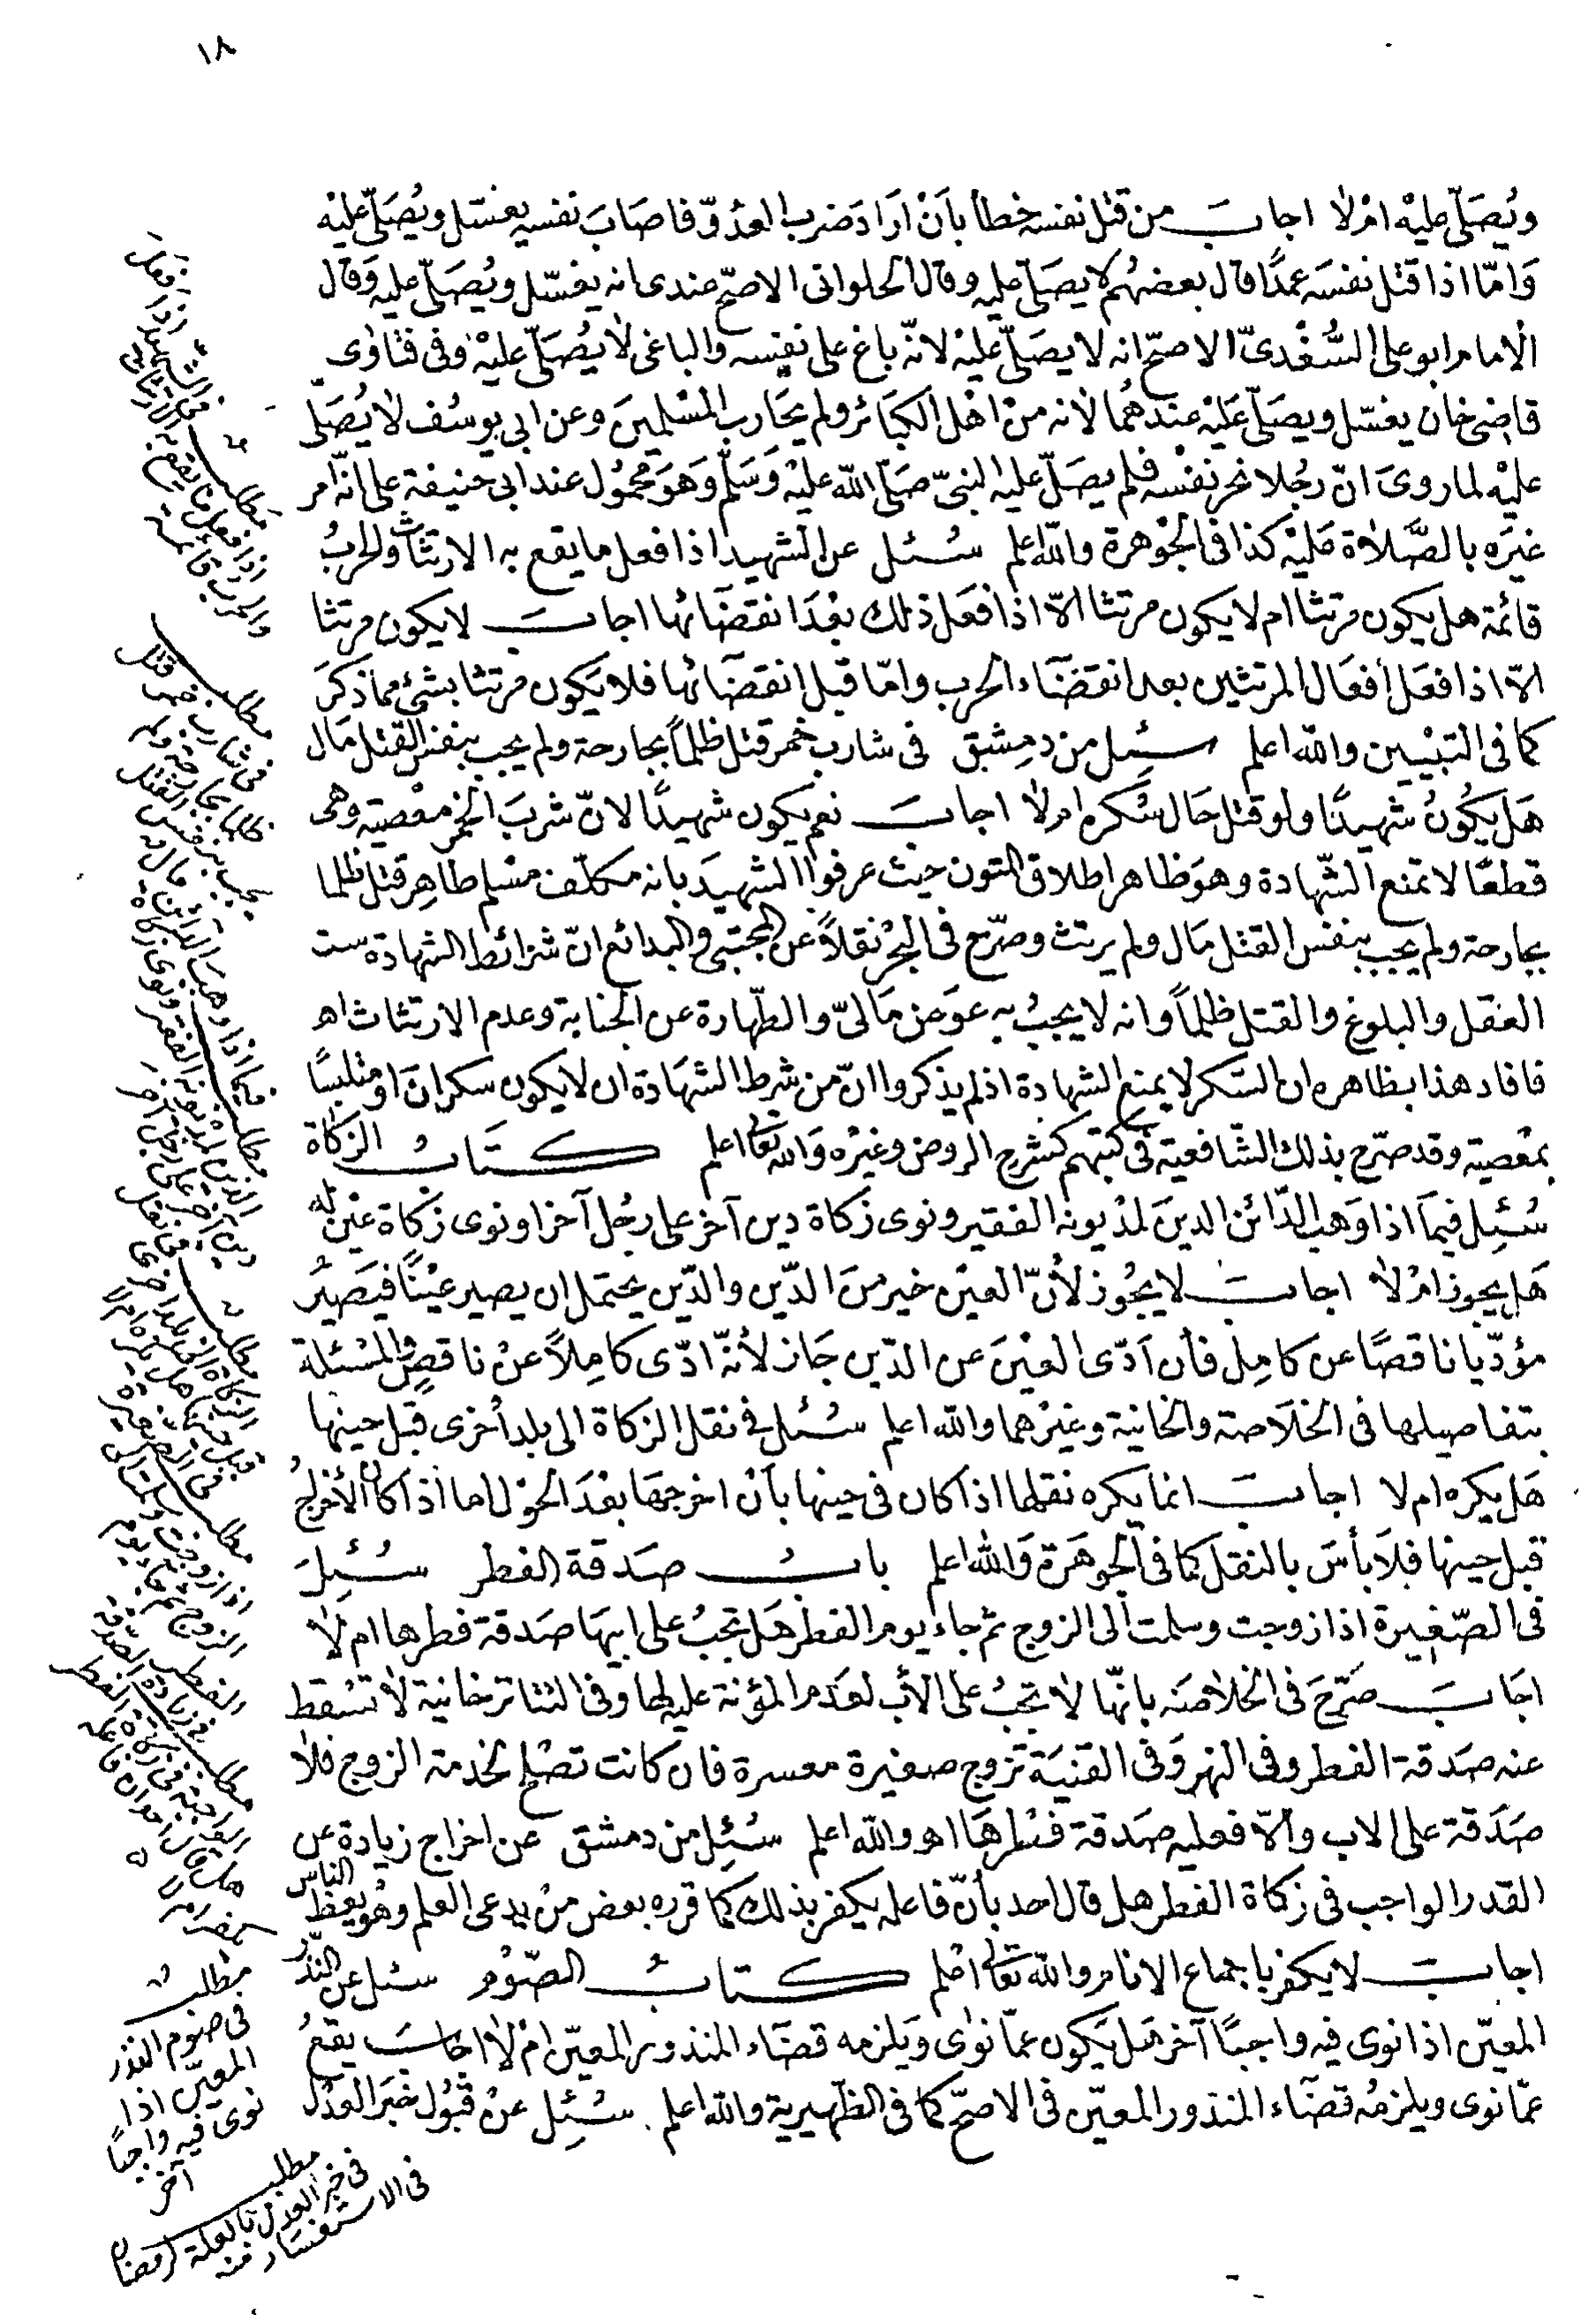 ١٨
ويُصَلّى عليْه امْ لا اجابَ من قتل نفسه خطأ بأنْ ارَادَ ضرب العدوّ فاصَابَ نفسه يغسّل ويُصَلّى عليْه
وَامّا اذا قتل نفسَه عمدًا قال بعضهُم لا يصَلّى عليه وقال الحلوانى الاصحّ عندى انه يغسّل ويُصَلّى عليه وَقال
الامام ابو على السُّغْدىّ الاصحّ انه لا يصَلّى عليْه لانّه باغ على نفسه والباغى لا يُصَلّى عليْه وفى فتاوى
قاضى خان يغسّل ويصَلّى عَليْه عندهُمَا لانه منْ اهْل الكبَائر ولم يحَارب المسْلمينَ وعن ابي يوسُف لا يُصَلى
عليْه لما روىَ انّ رجُلا نحر نفسْه فلم يصَلّ عليه النبىّ صَلّى الله عليْه وَسَلّم وَهوَ محمُول عند ابى حنيفة على انّه امر
غيَره بالصَّلاة عَليْه كذا فى الجَوْهرة والله اعلم سُئل عن الشهيد اذا فعل ما يقع به الارتثاث والحربُ
قائمة هل يكون مرتثا ام لا يكون مرتثا الاّ اذا فعَل ذلك بعْدَ انقضَائها اجابَ لا يكون مرتثا
الاّ اذا فعَل أفعَال المرتثين بعد انقضَاء الحرب وامّا قبل انقضَائها فلا يَكون مرتثا بشئ مما ذكرَ
كما فى التبْيين والله اعلم سُئِل من دمِشق فى شارب خمر قتل ظلماً بجارحة ولم يجب بنفس القتل مَال
هَل يكُونُ شهيدًا ولو قتل حَال سُكره ام لا اجابَ نعم يكون شهيدًا لانّ شربَ الخمر معْصية وهى
قطعًا لا تمنع الشّهادة وهوَ ظاهر اطلاق المتون حيث عرفوا الشهيدَ بانه مكلّف مسْلم طاهِر قتل ظلما
بجارحة ولم يجب بنفس القتل مَال ولم يرتث وصرّح فى البحْر نقلاً عن المجتبى والبدائع انّ شرائط الشهادة ست
العقل والبلوغ والقتل ظلماً وانه لا يجبُ به عوَض مَالىّ والطّهارة عن الجنابة وعدم الارتثاث اهـ
فافاد هذا بظاهره ان السّكر لا يمنع الشهادة اذ لم يذكروا انّ من شرط الشهَادة ان لا يكون سكرانَ او متلبسًا
بمعْصية وقد صرّح بذلك الشّافعية فى كتبهم كشرح الروض وغيْره وَالله تعالى اعلم كتَابُ الزكاة
سُئِل فيمَا اذا وَهب الدّائن الدينَ لمدْيونه الفقير ونوى زكاة دين آخر على رجُل آخر او نوى زكاة عيْن له
هَل يجوز امْ لا اجابَ لا يجُوز لأنّ العيْن خير منَ الدّين والدّين يحتمل ان يصير عيْنًا فيَصيرُ
مؤدّيا ناقصًا عن كامِل فأن اَدّى العيْنَ عن الدّين جَاز لأنّه ادّى كامِلاً عنْ ناقصٍ والمسْئلة
بتفاصيلها فى الخلَاصة والخانية وغيْرهما والله اعلم سُئل فى نقل الزكاة الى بلد أخرى قبْل حينها
هَل يكره ام لا اجابَ انما يكره نقلها اذا كان فى حينها بأنْ اخرجهَا بعْدَ الحوْل اما اذا كان الأخراجُ
قبل حينها فلَا بأسَ بالنقل كما فى الجوهَرة وَالله اعلم بابُ صَدقة الفطر سُئِلَ
فى الصّغيرة اذا زوجت وسلمت الى الزوج ثم جاء يوم الفطر هَل تجبُ على ابيهَا صَدقة فطرها ام لا
اجَابَ صَرّحَ فى الخلاصَة بانّها لا تجبُ على الأب لعَدم المؤنة عليه لها وفى التتاترخانية لا تسْقط
عنه صَدقة الفطر وفى النهر وَفى القنيَة تزوج صغيرة معسرة فان كانت تصْلح لخدمة الزوج فلا
صَدَقة على الاب والاّ فعليه صَدقة فطرهَا اهـ والله اعلم سُئِل من دمشق عن اخراج زيادة عن
القدر الواجب فى زكاة الفطر هل قال احد بأنّ فاعله يكفر بذلك كما قرره بعض منْ يدعى العلم وهوَ يعظ الناس
اجابَ لا يكفر باجماع الانام والله تعالى اعْلم كتابُ الصّوْم سئل عن النذر
المعيّن اذا نوى فيه واجبًا آخر هَل يَكون عمّا نوى وَيلزمه قضَاء المنذور المعيّن امْ لا اجابَ يقعُ
عمّا نوى ويلزمُه قضَاء المنذور المعيّن فى الاصحّ كما فى الظّهيرية والله اعلم . سُئِل عنْ قبُول خبَر العدْل
مطلب
فى الشهيد اذا فعل
مطلب
اذا فعل ما يقع به الارتثاث
والحرب قائمة
مطلب
فى شارب خمر قتل
ظلما بجارحة ولم
يجب بنفس القتل
مال
مطلب
فيما اذا وهب الدائن
الدين لمديونه الفقير ونوى زكاة
دين آخر على رجل آخر
مطلب
فى نقل
الزكاة الى بلد اخرى
قبل حينها هل يكره ام لا
مطلب
فى الصغيرة
اذا زوجت وسلمت الى
الزوج ثم جاء يوم
الفطر
مطلب
فى زيادة الصدقة
الواجبة فى زكاة الفطر
هل قال احد ان فاعله
يكفر ام لا
مطلب
فى صَوْم النذر
المعيّن اذا
نوى فيه واجبًا
آخر
مطلب
فى خبر العدْل بالعلة لرمضان
فى الاستفسار منه